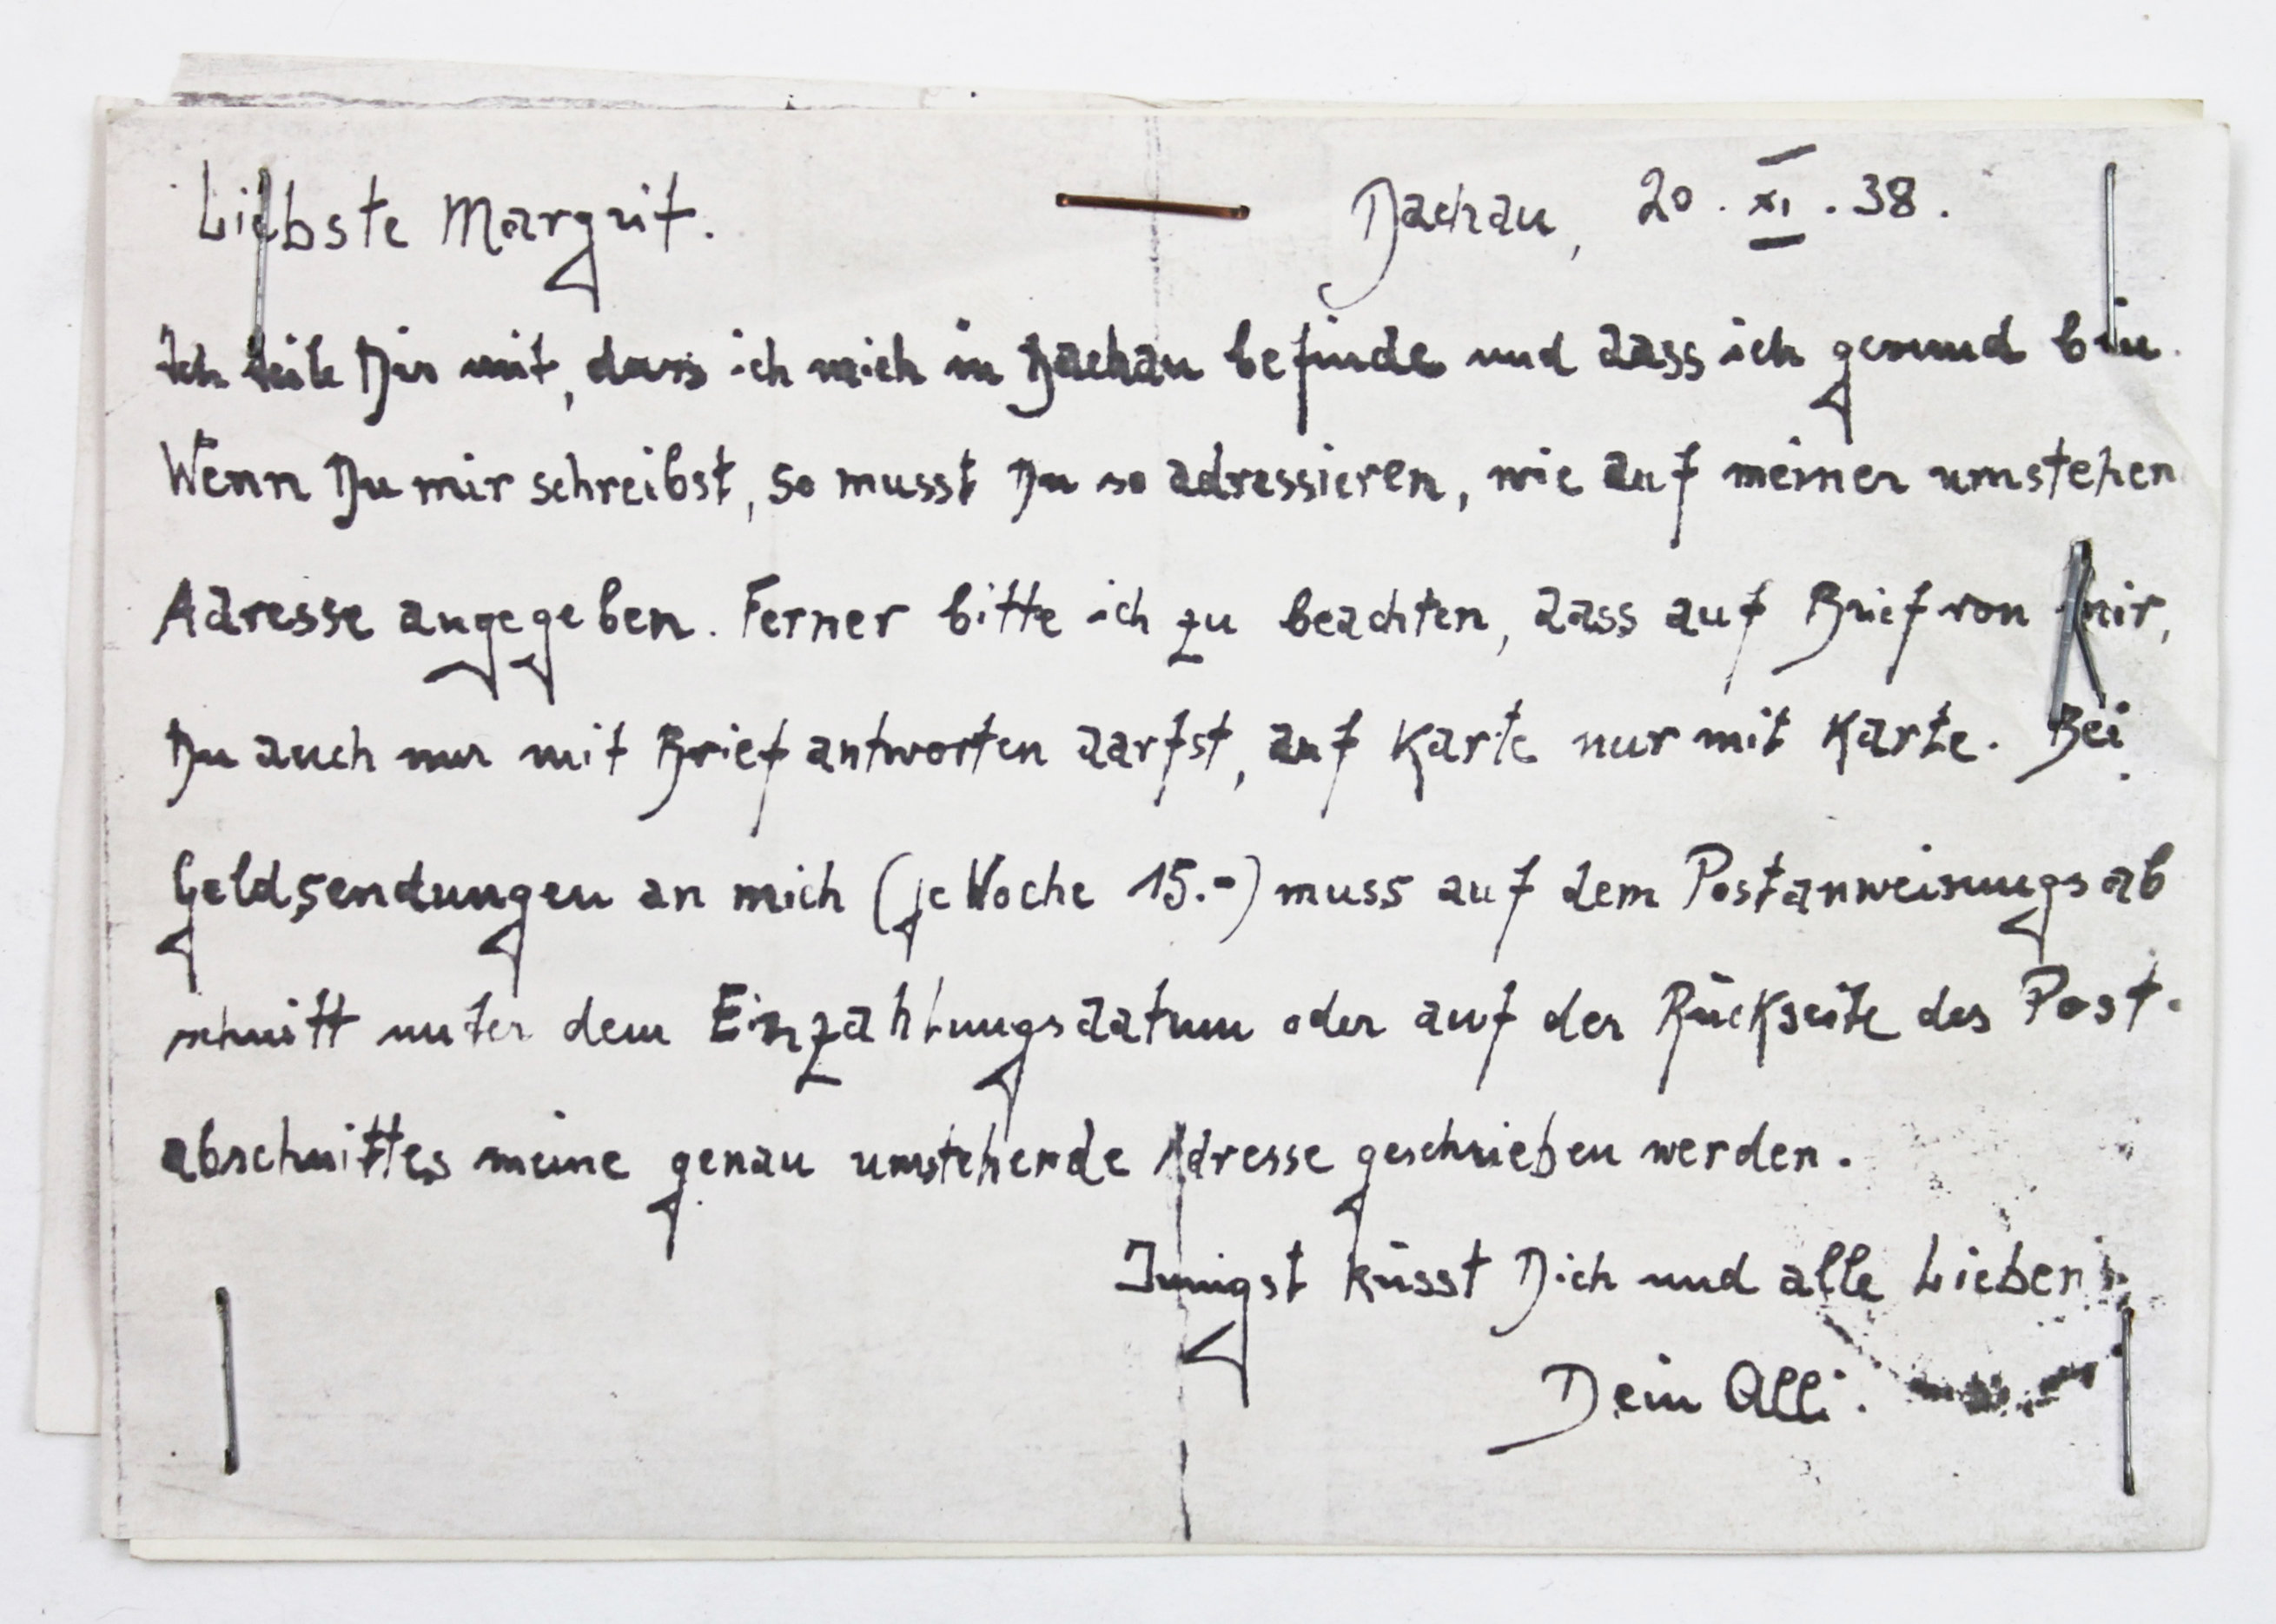 Liebste Margrit. Dachau, 20. XI. 38.
Ich teile Dir mit, dass ich mich in Dachau befinde und dass ich gesund bin.
Wenn Du mir schreibst, so musst Du so adressieren, wie auf meiner umstehen
Adresse angegeben. Ferner bitte ich zu beachten, dass auf Brief von mir,
Du auch nur mit Brief antworten darfst, auf Karte nur mit Karte. Bei
Geldsendungen an mich (je Woche 15.-) muss auf dem Postanweisungsab
schnitt unter dem Einzahlungsdatum oder auf der Rückseite des Post-
abschnittes meine genau umstehende Adresse geschrieben werden.
Innigst küsst Dich und alle Lieben
Dein Olli.